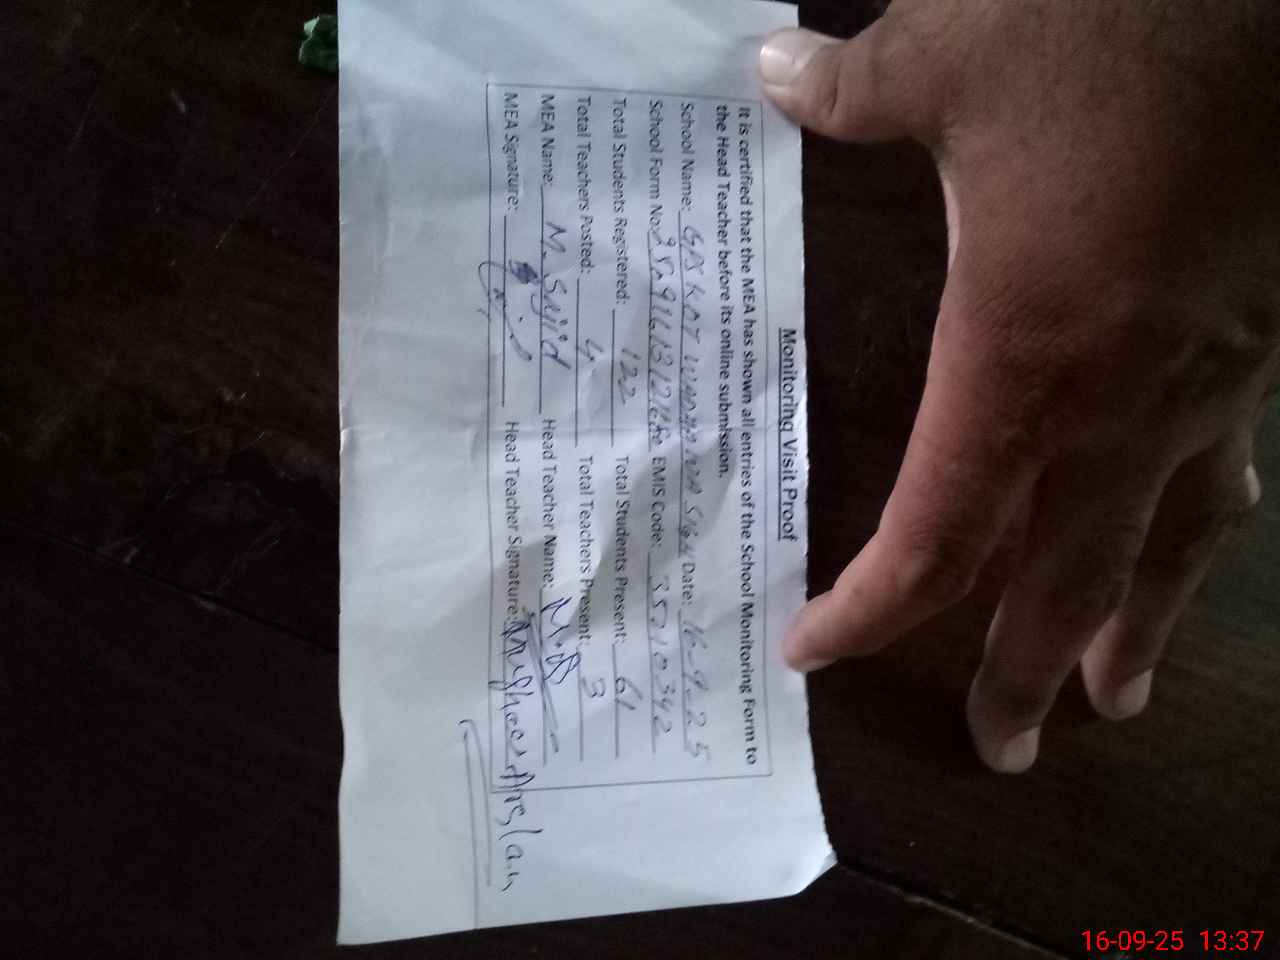 Monitoring Visit Proof
It is certified that the MEA has shown all entries of the School Monitoring Form to
the Head Teacher before its online submission.
School Name: GPS KOT Date: 16-9-25
School Form No: EMIS Code: 35210342
Total Students Registered: 122 Total Students Present: 61
Total Teachers Posted: 4 Total Teachers Present: 3
MEA Name: M. Sajid Head Teacher Name:
MEA Signature: Head Teacher Signature: Arslan
16-09-25 13:37